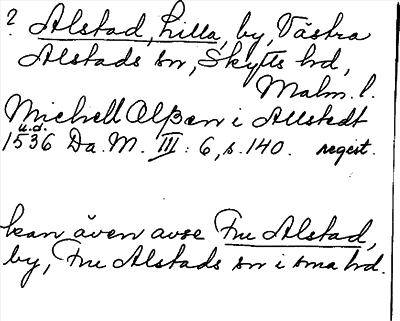 ? Alstad, Lilla, by, Västra
Alstads sn, Skytts hd,
Malm. l.
Michell Olßen i Allstedt
u.d.
1536 Da. M. III: 6, s. 140. regest.
kan även avse Fru Alstad,
by, Fru Alstads sn i sma hd.